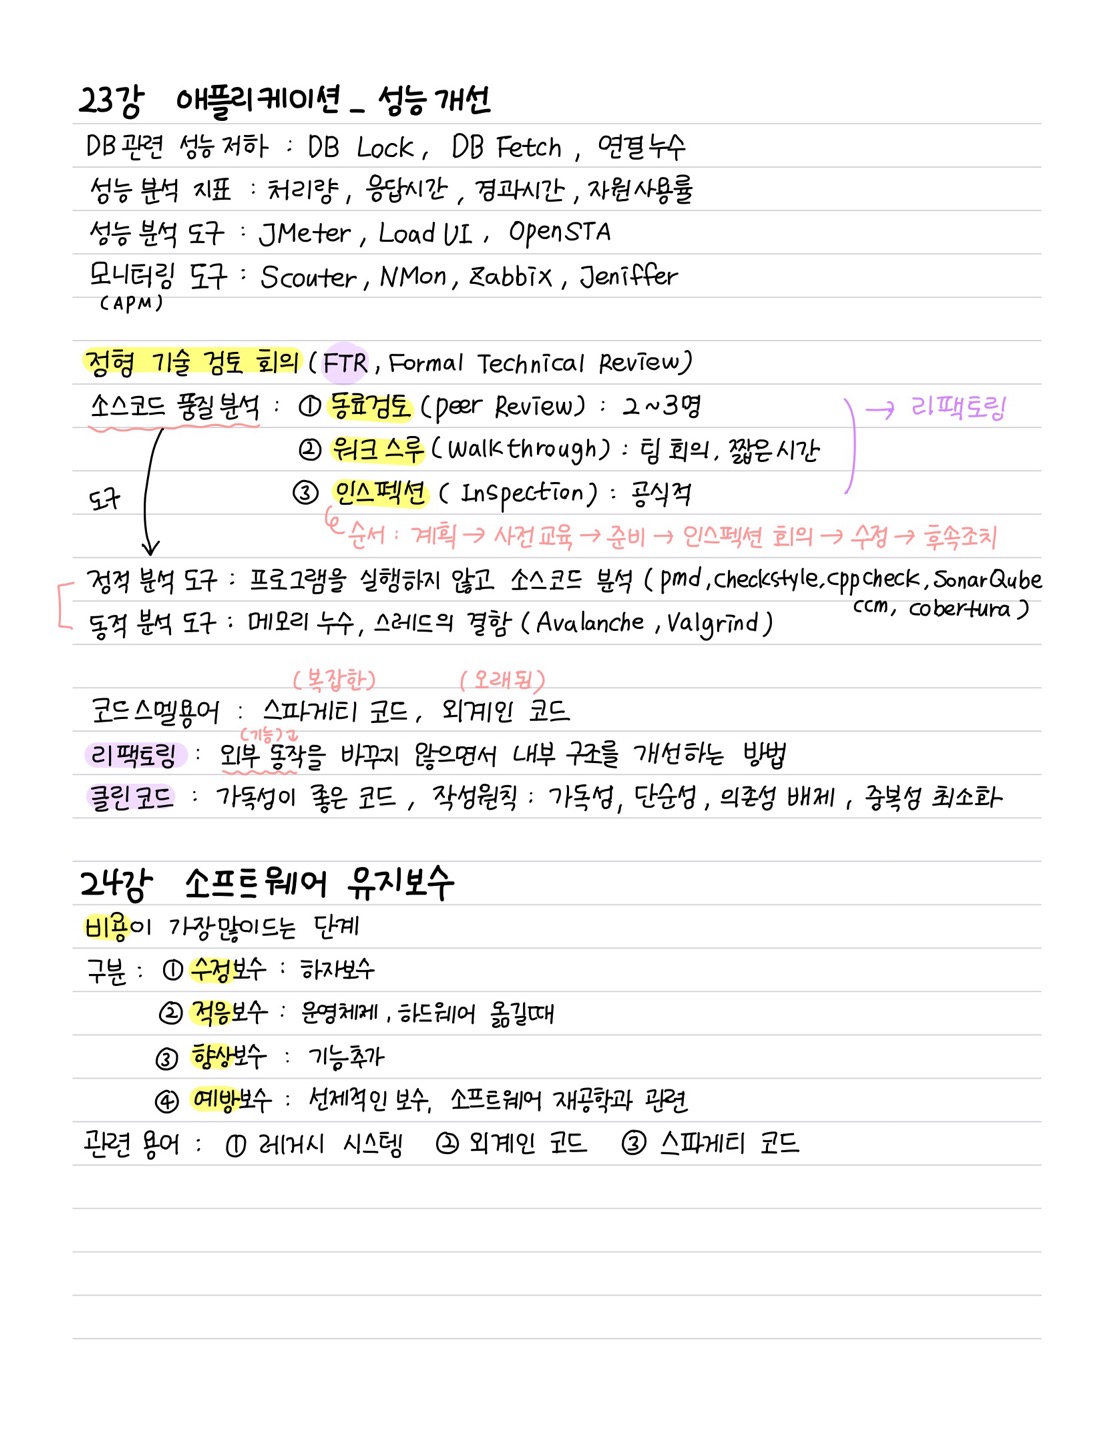 23강 애플리케이션 _ 성능 개선
DB 관련 성능 저하 : DB Lock, DB Fetch, 연결 누수
성능 분석 지표 : 처리량, 응답시간, 경과시간, 자원사용률
성능 분석 도구 : JMeter, Load UI, OpenSTA
모니터링 도구 : Scouter, NMon, Zabbix, Jeniffer
(APM)
정형 기술 검토 회의 (FTR, Formal Technical Review)
소스코드 품질분석 : ① 동료검토 (peer Review) : 2~3명 → 리팩토링
② 워크스루 (Walkthrough) : 팀 회의, 짧은시간
도구 ③ 인스펙션 ( Inspection) : 공식적
순서 : 계획 → 사전교육 → 준비 → 인스펙션 회의 → 수정 → 후속조치
정적 분석 도구 : 프로그램을 실행하지 않고 소스코드 분석 (pmd, checkstyle, cppcheck, SonarQube
ccm, cobertura)
동적 분석 도구 : 메모리 누수, 스레드의 결함 (Avalanche, Valgrind)
(복잡한) (오래됨)
코드스멜용어 : 스파게티 코드, 외계인 코드
(기능)고
리팩토링 : 외부 동작을 바꾸지 않으면서 내부 구조를 개선하는 방법
클린코드 : 가독성이 좋은 코드, 작성원칙 : 가독성, 단순성, 의존성 배제, 중복성 최소화
24강 소프트웨어 유지보수
비용이 가장많이드는 단계
구분 : ① 수정보수 : 하자보수
② 적응보수 : 운영체제, 하드웨어 옮길때
③ 향상보수 : 기능추가
④ 예방보수 : 선제적인 보수, 소프트웨어 재공학과 관련
관련 용어 : ① 레거시 시스템 ② 외계인 코드 ③ 스파게티 코드